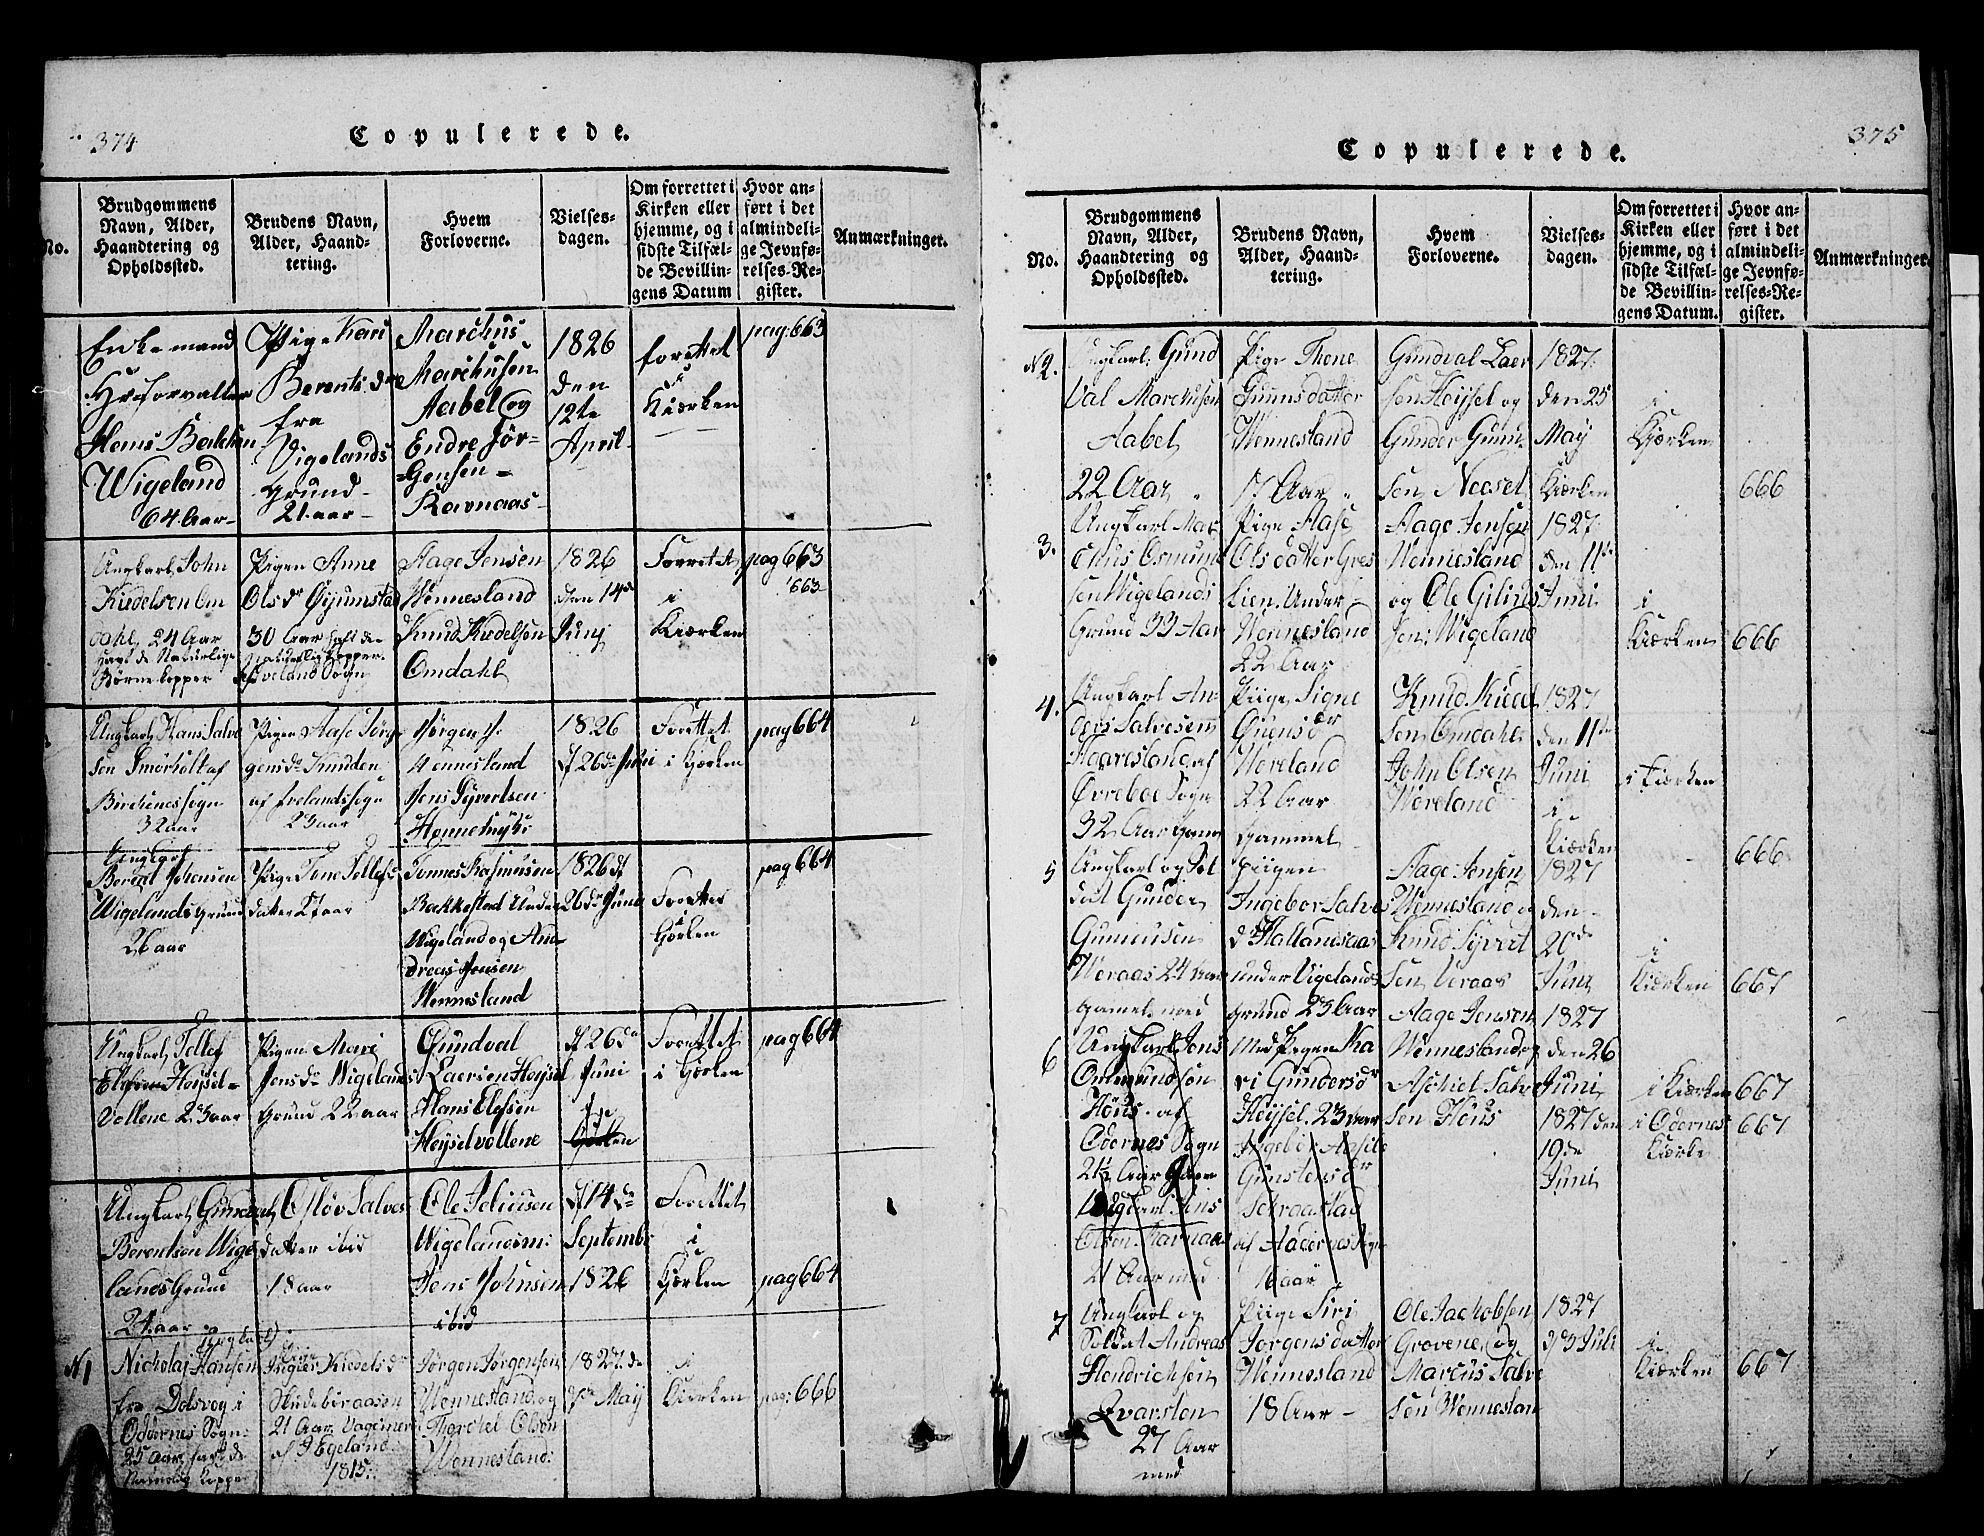 374
Copulerede.
No.
Brudgommens
Navn, Alder,
Haandtering og
Opholdssted.
Brudens Navn,
Alder, Haand-
tering.
Hvem
Forloverne.
Vielses-
dagen.
Om forrettet i
Kirken eller
hjemme, og i
sidste Tilfæl-
de Bevillin-
gens Datum
Hvor an-
ført i det
almindeli-
ge Jevnfø-
relses-Re-
gister.
Anmærkninger.
Enkemand
Hans
Wigeland
64 Aar
Pige Kari
Berents
fra
Vigelands
Grund
21 aar
Marchus
Marchusen
Aabel og
Endre Jør-
gensen
Ravnaas
1826
den
12te
April
forettet
i
Kiærken
pag: 663
Ungkarl John
Kiedelsen Om
dahl, 24 Aar
Havt de Naturlige
Børnekopper
Pigen Anne
Olsdr
30 Aar haft de
Naturlig kopper
Sogn
Aage Jensen
Wennesland
Knud Kiedelsen
Omdahl
1826
den 14de
Junj
Forrettet
i
Kiærken
pag 663
663
Ungkarl Hans Salve
sen Smørholt af
Birchenes sogn
32 aar
Pigen Aase Jørg
gensdr Knuden
af Evelands sogn
23 aar
Jørgen
Wennesland
Jens Syvertsen
1826
d 26de Juni
Forettet
i Kjærken
pag 664
Ungkarl
Johnsen
Wigelands Grund
26 aar
Pige Tone Tellefs
datter 27 aar
Tonnes Rasmusen
Bakkestad Under
Wigeland og An
dreas Jensen
Wennesland
1826 d
26de Junj
Forettet
Kjørken
pag 664
Ungkarl Tellef
Elefsen Høysel=
Vollene 23 aar
Pigen Mari
Jensdr Wigelands
Grund 22 aar
Gundval
Laersen Høysel
Hans Elefsen
Høyselvollene
d 26de
Juni
Forettet
i Kjørken
pag 664
Ungkarl Gundval
Berentsen Wige
lands Grund
24 aar
Salves
datter ibid
18 aar
Ole
Wigelandsm:
Jens Johnsen
ibid
d 14de
Septembr
1826
Forettet
i
Kjørken
pag 664
N1
(Ungkarl)
Nicholaj Hansen
fra Dolsveg i
Oddernes Sogn:
25 Aar haft de
Naturlig Kopper
Kiedelsdr
21 Aar Vaginer
af
1815:
Jørgen Jørgensen
Wennesland og
Olsen
Wennesland:
1827 de
May
i
Kiærken
pag: 666
375
Copulerede.
No.
Brudgommens
Navn, Alder,
Haandtering og
Opholdssted.
Brudens Navn,
Alder, Haand-
tering.
Hvem
Forloverne.
Vielses-
dagen.
Om forrettet i
Kirken eller
hjemme, og i
sidste Tilfæl-
de Bevillin-
gens Datum.
Hvor an-
ført i det
almindeli-
ge Jevnfø-
relses-Re-
gister.
Anmærkninger.
N2.
Ungkarl: Gund
val Marchusen
Aabel
22 Aar
Pige Thone
Gunnsdatter
Wennesland
17 Aar
Gundval Laer
sen Høysel og
Gunder Gunn
sen
1827
den 25
May
Kiærken
i
Kjærken
666
3.
Ungkarl Mar
chus Osmund
sen Wigelands
Grund 33 Aar
Pige Aase
Olsdatter Gres
lien. Under
Wennesland
22 Aar
Aage Jensen
Wennesland
og Ole
sen: Wigeland
1827
den 11te
Juni
i
Kiærken
666
4.
Ungkarl An
ders Salvesen
Haaresland af
Øvreboe Sogn
32 Aar Gam
Piige, Signe
Woreland
22 Aar
Gammel
Knud Kiedel
sen Omdahl
John Olsen
Woreland
1827
den 11te
Juni
i
Kiærken
i Kiærken
666
5
Ungkarl og Sol
dat Gunder
Gunnusen
Woraas 24 Aar
gamel med
Piigen
Ingebor Salves
dr Hallandsaas
under Vigelands
Grund 23 Aar
Aage Jensen
Wennesland og
Knud Syvert
sen Veraas
1827
den
20de
Juni
i
Kiærken
667
6
Ungkarl Jens
Ommundsøn
Höus af
Odernes Sogn
21½ Aar
Ungkarl Jens
Olsen Ravnaas
21 Aar med
Med Pigen Ka
ri Gundersdr
Høysel. 23 Aar
Gunstensdr
af Aadernes Sogn
16 aar
Aage Jensen
Wennesland og
Salve
sen Höus
1827
den 26
Juni
1827 den
19de
Juni
i Kiærken
i Odernes
Kiærke
667
667
7
Ungkarl og
Soldat Andreas
Hendrichsen
Qvarsten
27 Aar
med
Piige Siri
Jørgensdatter
Wennesland
18 Aar
Ole Jachobsen
Grovene og
Marcus Salve
sen Wenneslan
1827
d 3 Juli
i
Kiærken
667